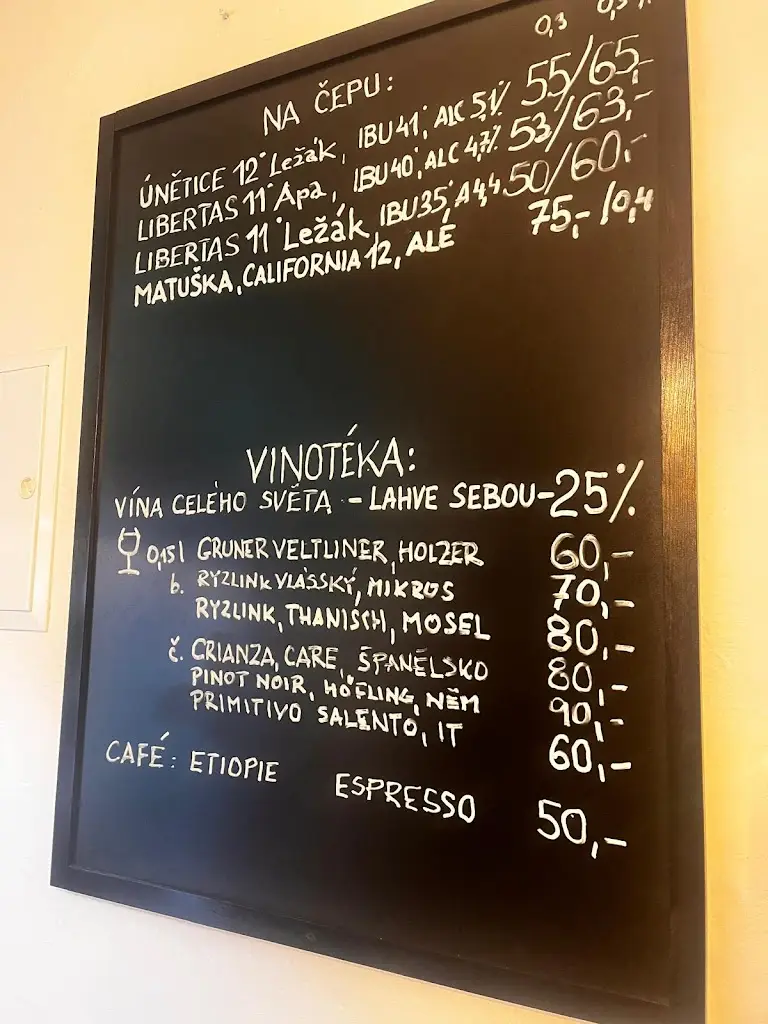 0,3 0,5 l
NA ČEPU:
ÚNĚTICE 12° Ležák, IBU 41, ALC 5,1% 55/65,-
LIBERTAS 11° Apa, IBU 40, ALC 4,7% 53/63,-
LIBERTAS 11° Ležák, IBU 35, A 4,4. 50/60,-
MATUŠKA, CALIFORNIA 12, ALE 75,- /0,4
VINOTÉKA:
VÍNA CELÉHO SVĚTA - LAHVE SEBOU -25%
0,15 l GRUNER VELTLINER, HOLZER 60,-
b. RYZLINK VLAŠSKÝ, MIKROS 70,-
RYZLINK, THANISCH, MOSEL 80,-
č. CRIANZA, CARE, ŠPANĚLSKO 80,-
PINOT NOIR, HÖFLING, NĚM 90,-
PRIMITIVO SALENTO, IT 60,-
CAFÉ: ETIOPIE ESPRESSO 50,-